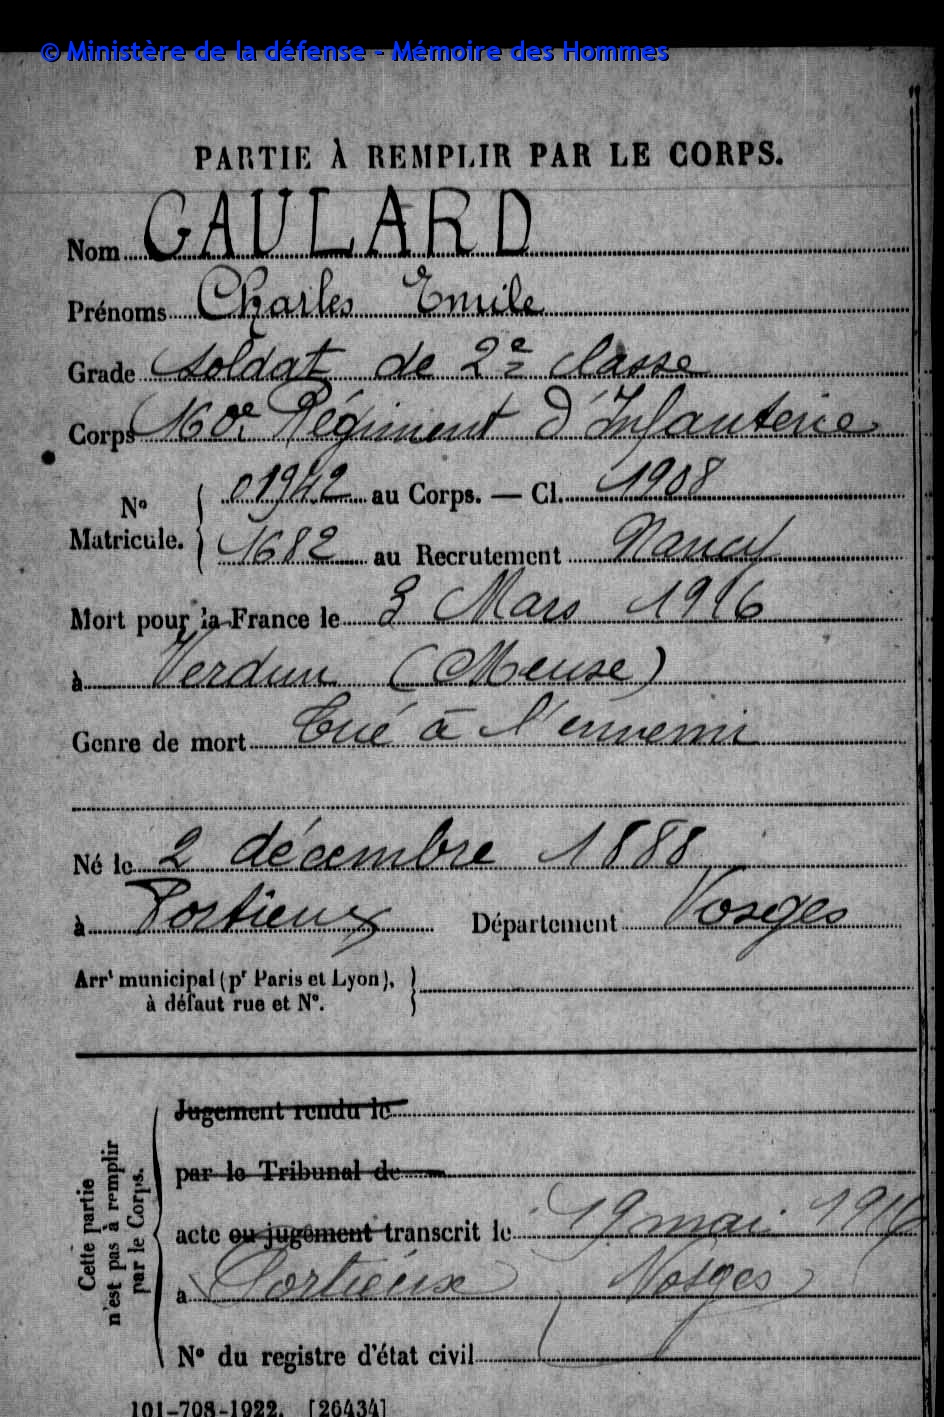 © Ministère de la défense - Mémoire des Hommes
PARTIE À REMPLIR PAR LE CORPS.
Nom GAULARD
Prénoms Charles Emile
Grade Soldat de 2e classe
Corps 160e Régiment d'Infanterie
N° Matricule. { 01942 au Corps. — Cl. 1908
1682 au Recrutement Nancy
Mort pour la France le 3 Mars 1916
à Verdun (Meuse)
Genre de mort Tué à l'ennemi
Né le 2 décembre 1888
à Portieux Département Vosges
Arrt municipal (pr Paris et Lyon),
à défaut rue et N°.
Cette partie
n'est pas à remplir
par le Corps.
Jugement rendu le
par le Tribunal de
acte ou jugement transcrit le 19 mai 1916
à Portieux (Vosges)
N° du registre d'état civil
101-708-1922. [26434]